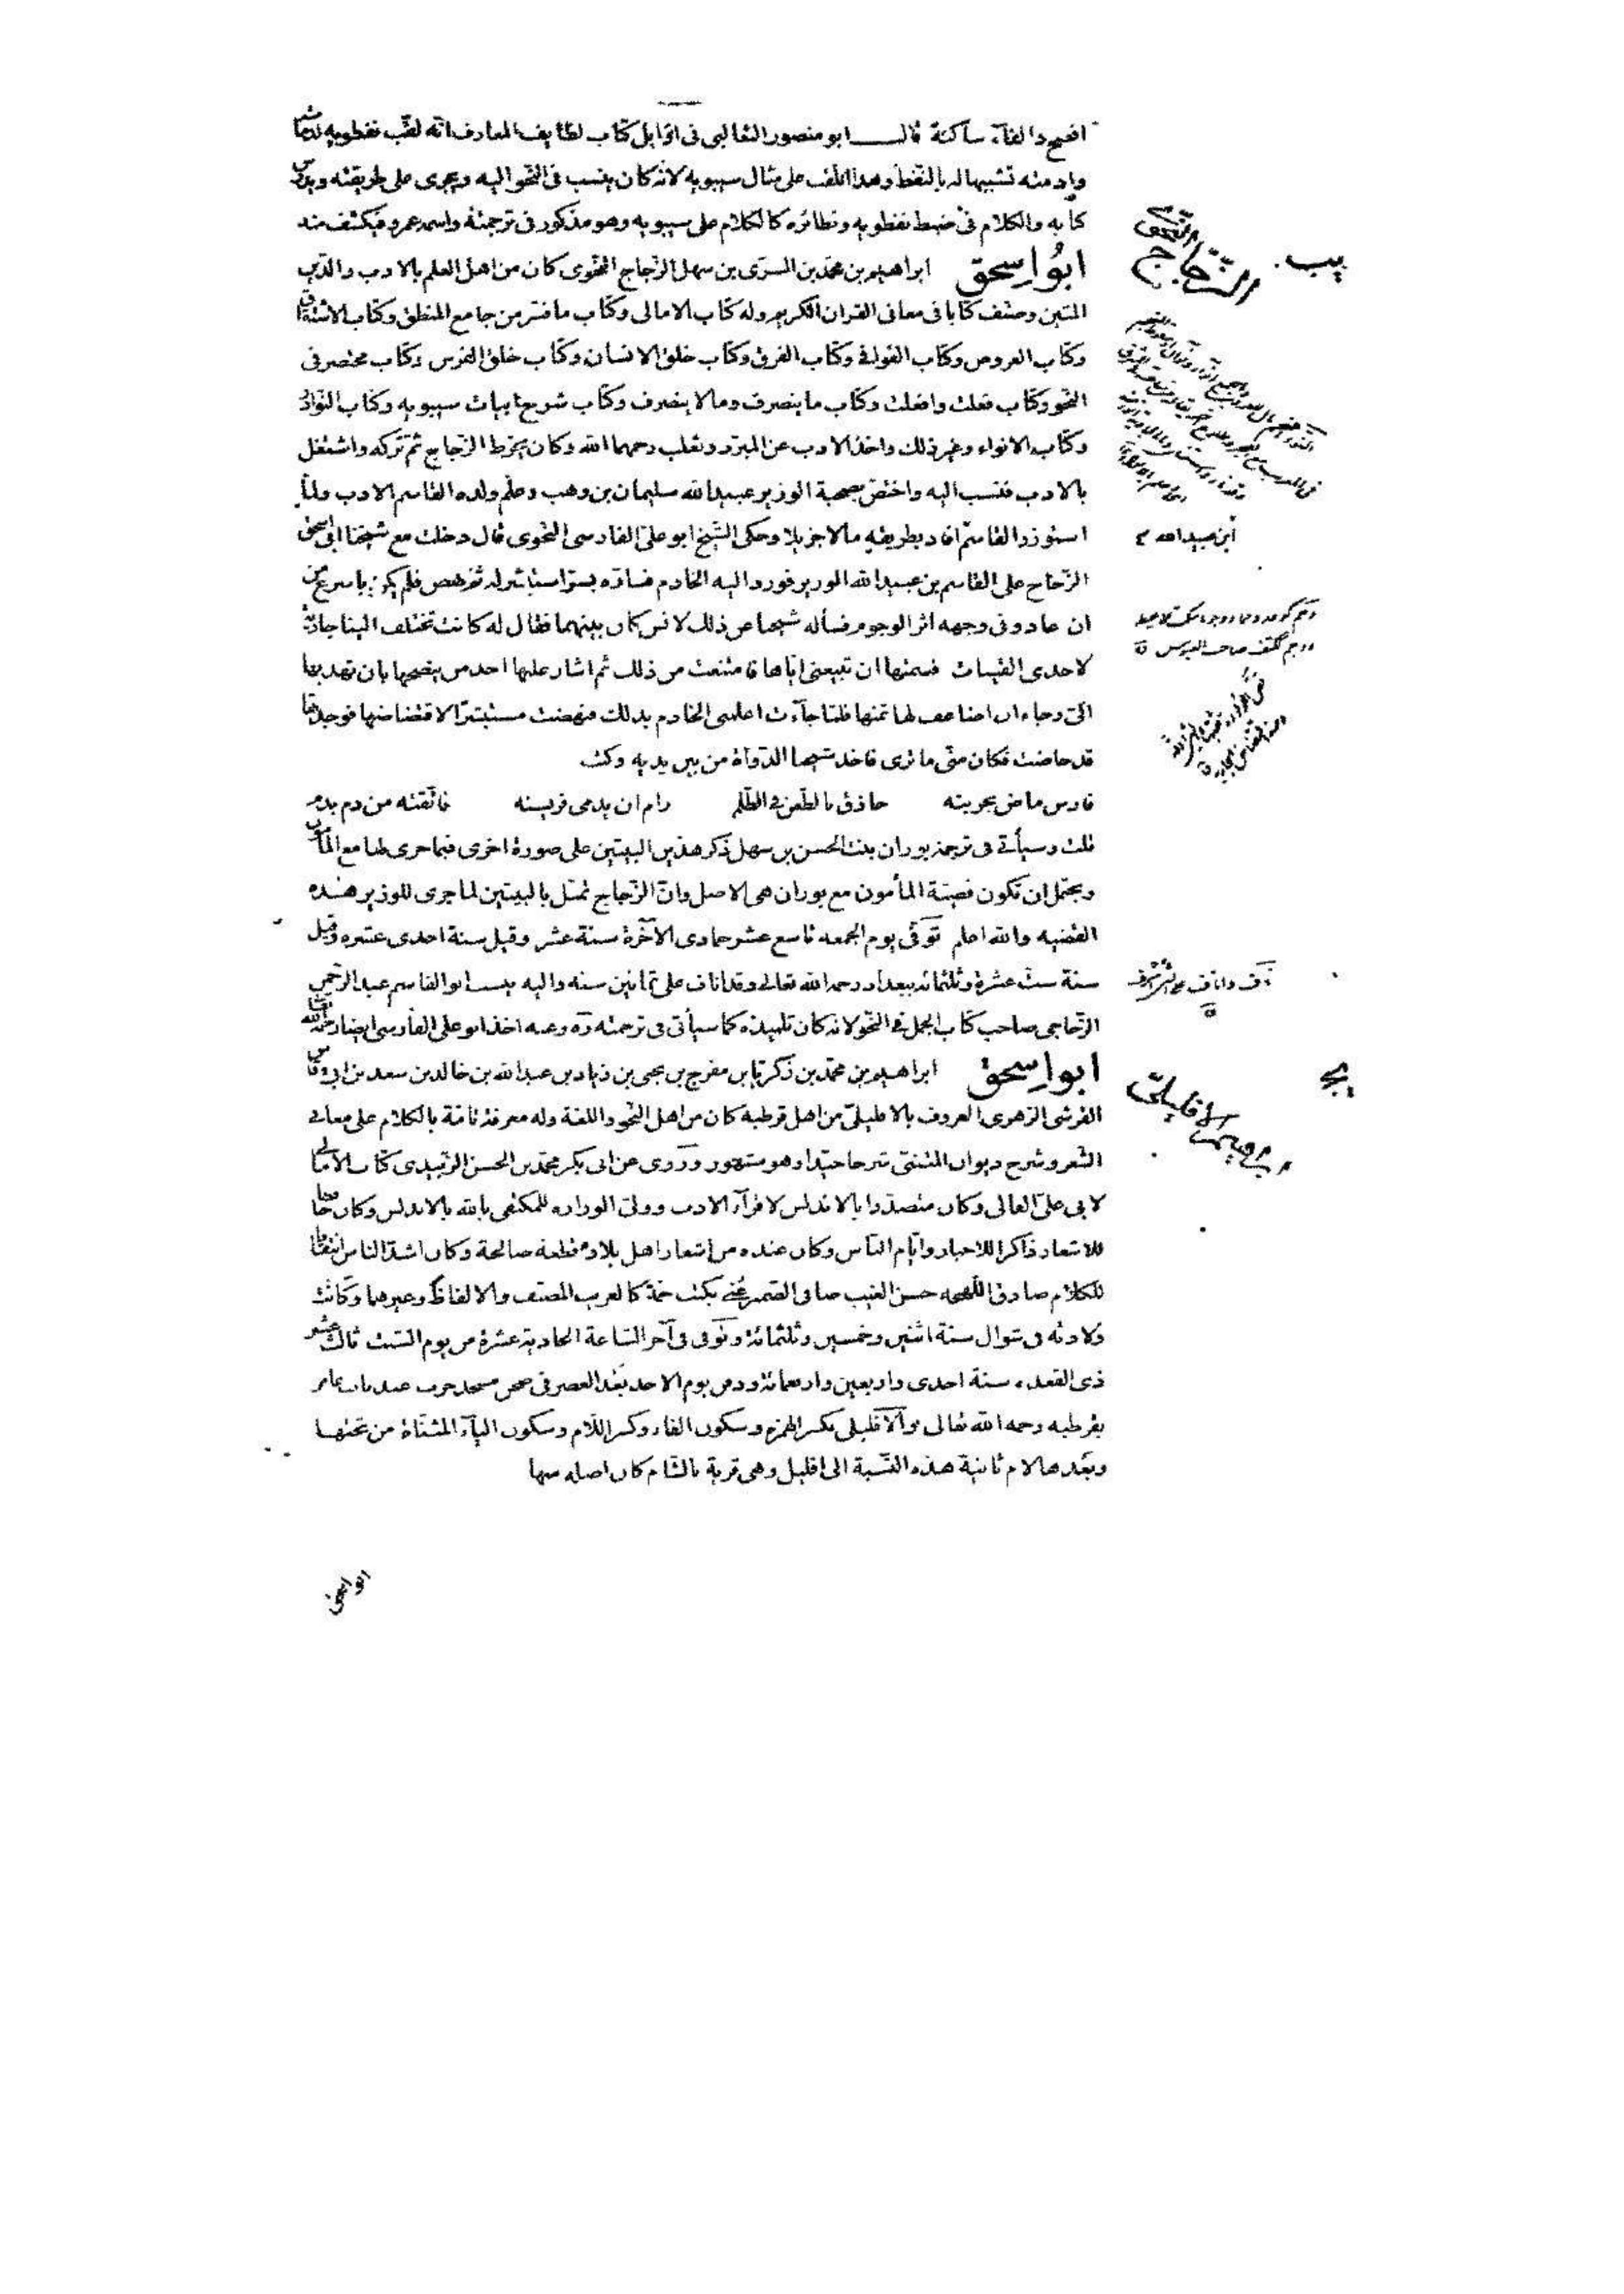 افصح والفاء ساكنة قال ابو منصور الثعالبى فى اوايل كتاب لطايف المعارف انه لقب نفطويه لدمامته
وادمته تشبيها له بالنفط وهذا اللقب على مثال سيبويه لانه كان ينسب فى النحو اليه ويجرى على طريقته ويدرس
كتابه والكلام فى ضبط نفطويه ونظائره كالكلام على سيبويه وهو مذكور فى ترجمته واسمه عمرو فيكشف منه
ابو اسحق ابراهيم بن محمد بن السرى بن سهل الزجاج النحوى كان من اهل العلم بالادب والدين
المتين وصنف كتابا فى معانى القران الكريم وله كتاب الامالى وكتاب ما فسر من جامع المنطق وكتاب الاشتقاق
وكتاب العروض وكتاب القوافى وكتاب الفرق وكتاب خلق الانسان وكتاب خلق الفرس وكتاب مختصر فى
النحو وكتاب فعلت وافعلت وكتاب ما ينصرف وما لا ينصرف وكتاب شرح ابيات سيبويه وكتاب النوادر
وكتاب الانواء وغير ذلك واخذ الادب عن المبرد وثعلب رحمهما الله وكان يخرط الزجاج ثم تركه واشتغل
بالادب فنسب اليه واختص بصحبة الوزير عبيد الله سليمان بن وهب وعلم ولده القاسم الادب ولما
استوزر القاسم افاد بطريقه مالا جزيلا وحكى الشيخ ابو على الفارسى النحوى قال دخلت مع شيخنا ابى اسحق
الزجاج على القاسم بن عبيد الله الوزير فورد اليه الخادم فساره بسر استبشر له ثم نهض فلم يكن باسرع من
ان عاد وفى وجهه اثر الوجوم فسأله شيخنا عن ذلك لانس كان بينهما فقال له كانت تختلف الينا جارية
لاحدى القينات فسمتها ان تبيعنى اياها فامتنعت من ذلك ثم اشار عليها احد من ينصحها بان تهديها
الى رجاء ان اضاعف لها ثمنها فلما جاءت اعلمنى الخادم بذلك فنهضت مستبشرا لافتضاضها فوجدتها
قد حاضت فكان منى ما ترى فاخذ شيخنا الدواة من بين يديه وكتب
فارس ماض بحربته حاذق بالطعن فى الظلم رام ان يدمى فريسته فاتقته من دم بدم
قلت وسيأتى فى ترجمة بوران بنت الحسن بن سهل ذكر هذين البيتين على صورة اخرى فيما جرى لها مع المأمون
ويحتمل ان تكون قضية المأمون مع بوران هى الاصل وان الزجاج تمثل بالبيتين لما جرى للوزير هذه
القضيه والله اعلم توفى يوم الجمعه تاسع عشر جمادى الآخرة سنة عشر وقيل سنة احدى عشره وقيل
سنة ست عشرة وثلثمائه ببغداد رحمه الله تعالى وقد اناف على ثمانين سنه واليه ينسب ابو القاسم عبد الرحمن
الزجاجى صاحب كتاب الجمل فى النحو لانه كان تلميذه كما سيأتى فى ترجمته ره وعنه اخذ ابو على الفارسى ايضا رحمه الله تعالى
ابو اسحق ابراهيم بن محمد بن زكريا بن مفرج بن يحيى بن زياد بن عبد الله بن خالد بن سعد بن ابى وقاص
القرشى الزهرى المعروف بالافليلى من اهل قرطبه كان من اهل النحو واللغة وله معرفة تامة بالكلام على معانى
الشعر وشرح ديوان المتنبى شرحا جيدا وهو مشهور وروى عن ابى بكر محمد بن الحسن الزبيدى كتاب الامالى
لابى على القالى وكان متصدرا بالاندلس لاقرآء الادب وولى الوزاره للمكتفى بالله بالاندلس وكان حافظا
للاشعار ذاكرا للاخبار وايام الناس وكان عنده من اشعار اهل بلاده قطعة صالحة وكان اشد الناس انتقادا
للكلام صادق اللهجه حسن الغيب صافى الضمير عنى بكتب جمة كالغريب المصنف والالفاظ وغيرهما وكانت
ولادته فى شوال سنة اثنين وخمسين وثلثمائة وتوفى فى آخر الساعة الحادية عشرة من يوم السبت ثالث عشر
ذى القعده سنة احدى واربعين واربعمائة ودفن يوم الاحد بعد العصر فى صحن مسجد خرب عند باب عامر
بقرطبه رحمه الله تعالى والافليلى بكسر الهمزه وسكون الفاء وكسر اللام وسكون اليآء المثناة من تحتها
وبعدها لام ثانية هذه النسبة الى افليل وهى قرية بالشام كان اصله منها
النحوى
الزجاج
يب
ابن عبيد الله
الافليلى
يج
ابو اسحق